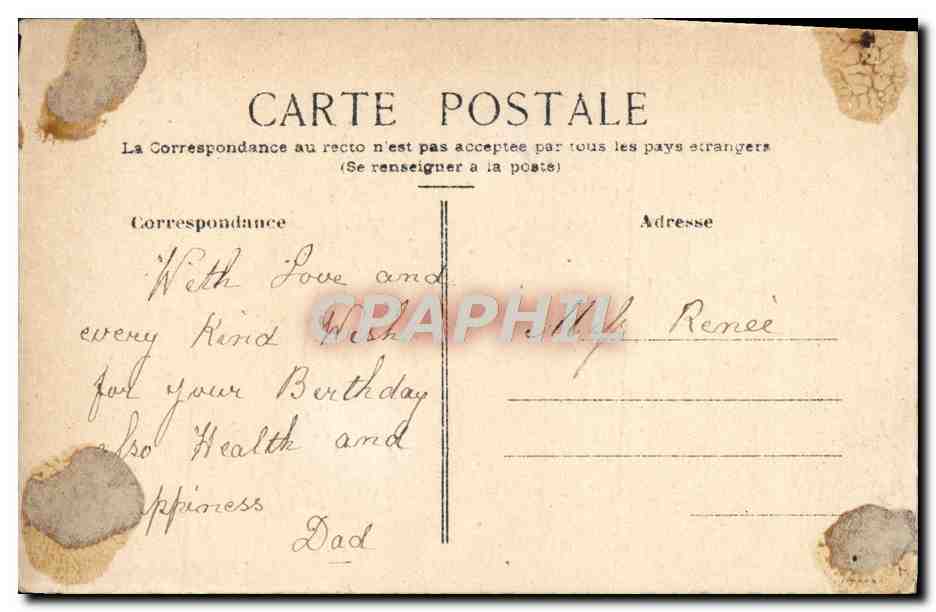 CARTE POSTALE
La Correspondance au recto n'est pas acceptée par tous les pays étrangers
(Se renseigner à la poste)
Correspondance
With Love and
every Kind Wish
for your Birthday
also Health and
ppiness
Dad
Adresse
Renée
CPAPHIL